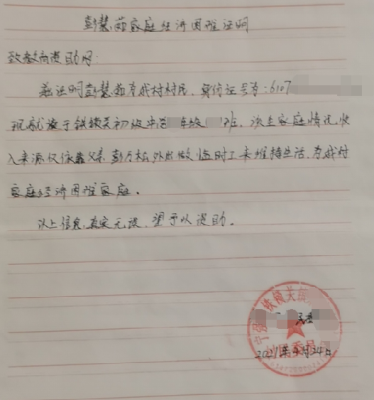 彭慧茹家庭经济困难证明
致教育资助网:
兹证明彭慧茹为我村村民,身份证号为:6107
现就读于铁锁关初级中学 年级 班,该生家庭情况收
入来源仅依靠父亲 外出做临时工来维持生活,为我村
家庭经济困难家庭。
以上信息,真实无误,望予以资助。
铁锁关
2021年 月24日